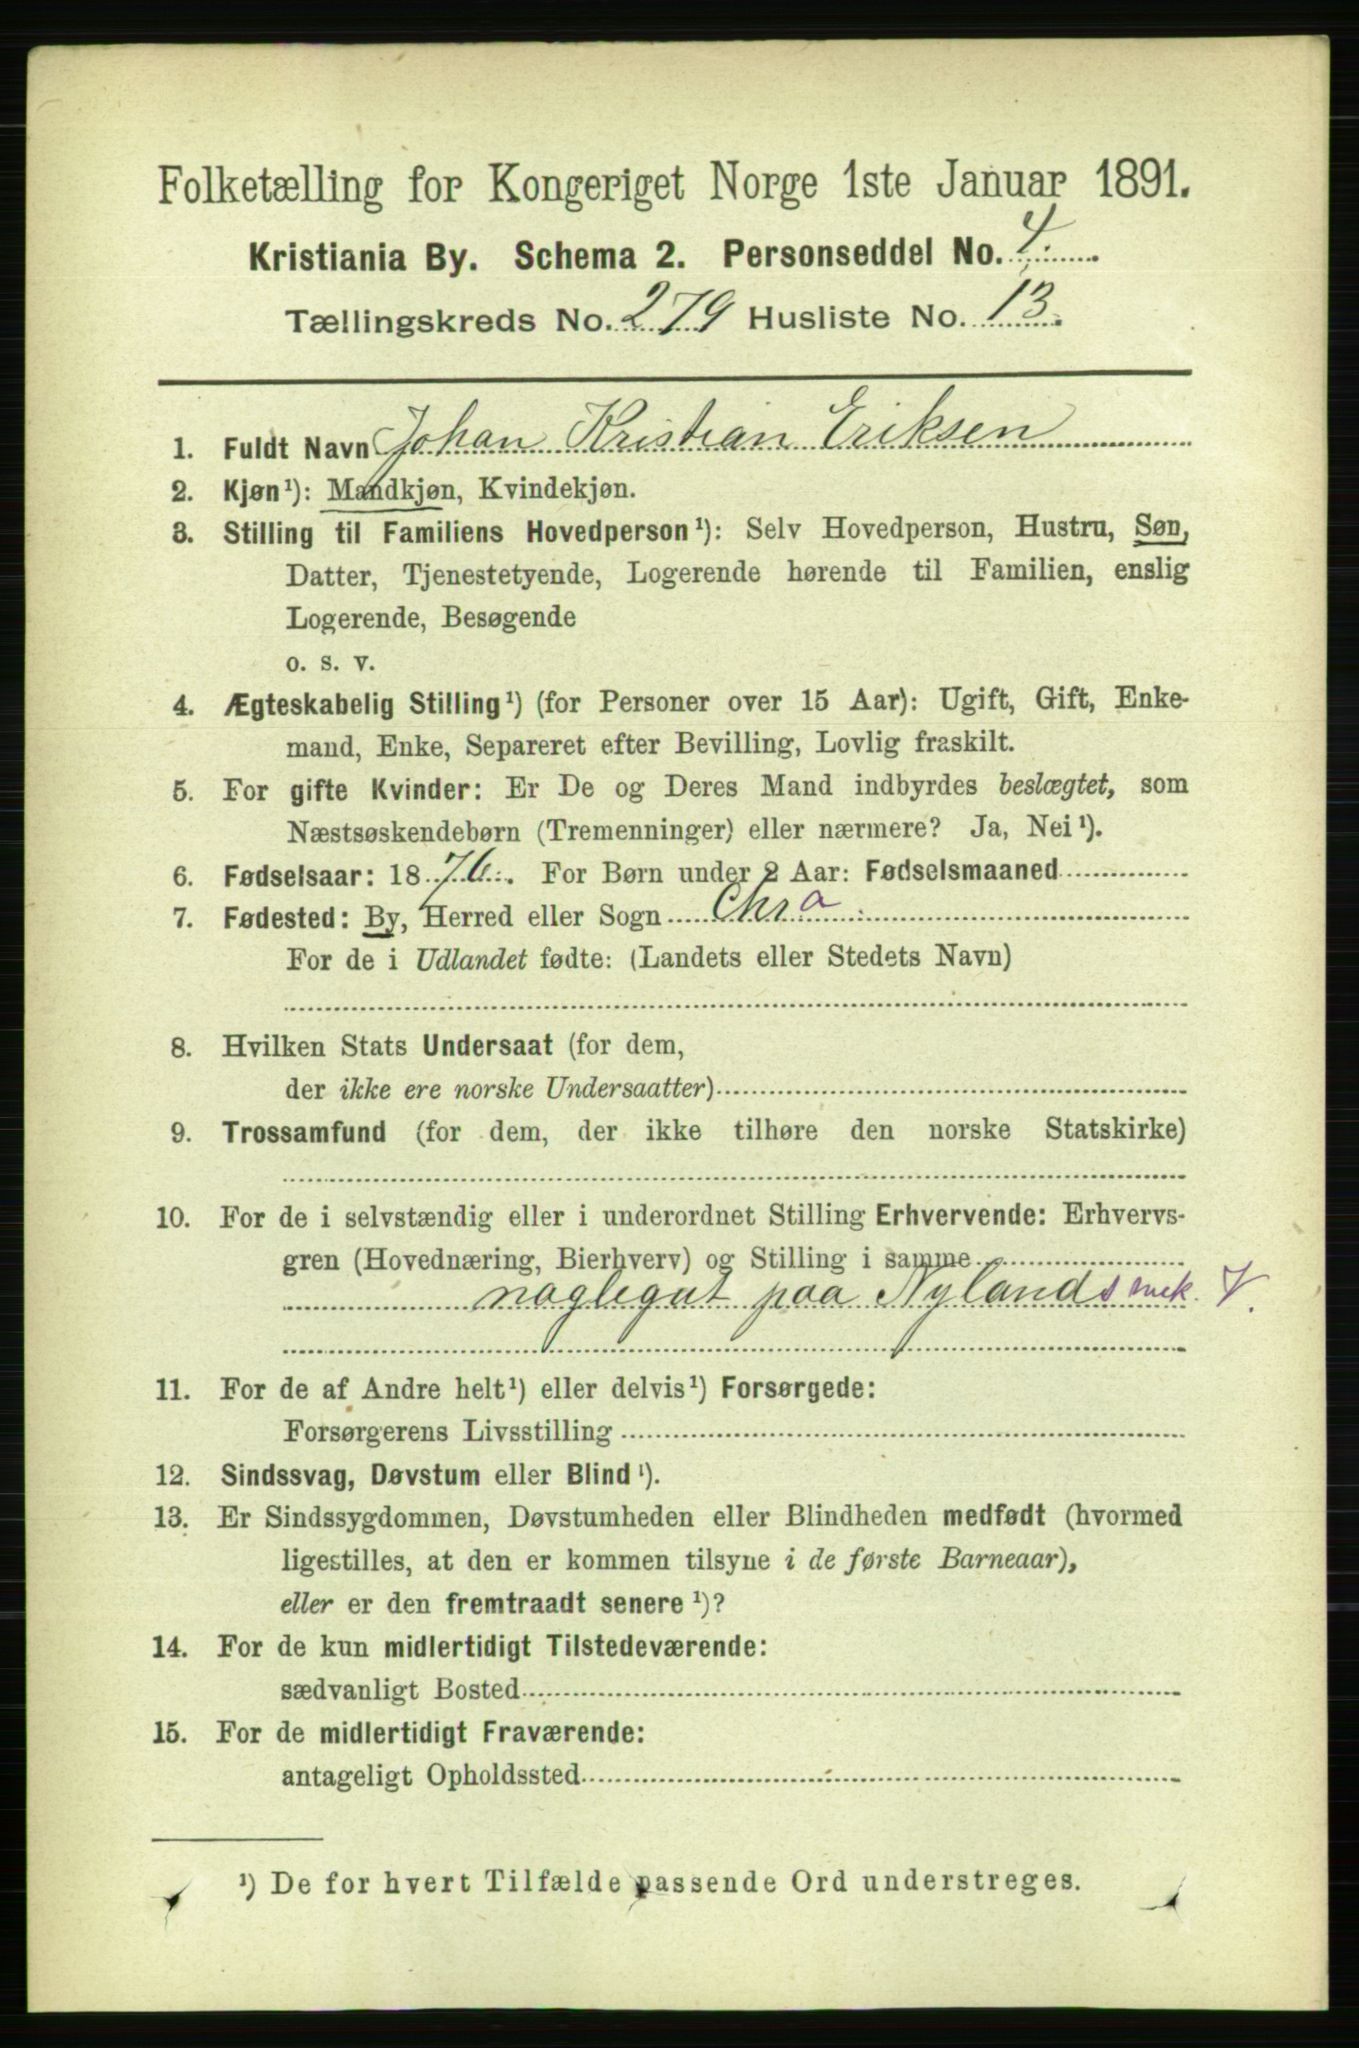 Folketælling for Kongeriget Norge 1ste Januar 1891.
Kristiania By. Schema 2. Personseddel No. 4.
Tællingskreds No. 279 Husliste No. 13.
1. Fuldt Navn Johan Kristian Eriksen
2. Kjøn¹): Mandkjøn, Kvindekjøn.
3. Stilling til Familiens Hovedperson¹): Selv Hovedperson, Hustru, Søn,
Datter, Tjenestetyende, Logerende hørende til Familien, enslig
Logerende, Besøgende
o. s. v.
4. Ægteskabelig Stilling¹) (for Personer over 15 Aar): Ugift, Gift, Enke-
mand, Enke, Separeret efter Bevilling, Lovlig fraskilt.
5. For gifte Kvinder: Er De og Deres Mand indbyrdes beslægtet, som
Næstsøskendebørn (Tremenninger) eller nærmere? Ja, Nei¹).
6. Fødselsaar: 1876. For Børn under 2 Aar: Fødselsmaaned
7. Fødested: By, Herred eller Sogn Chra
For de i Udlandet fødte: (Landets eller Stedets Navn)
8. Hvilken Stats Undersaat (for dem,
der ikke ere norske Undersaatter)
9. Trossamfund (for dem, der ikke tilhøre den norske Statskirke)
10. For de i selvstændig eller i underordnet Stilling Erhvervende: Erhvervs-
gren (Hovednæring, Bierhverv) og Stilling i samme
naglegut paa Nylands mek. V.
11. For de af Andre helt¹) eller delvis¹) Forsørgede:
Forsørgerens Livsstilling
12. Sindssvag, Døvstum eller Blind¹).
13. Er Sindssygdommen, Døvstumheden eller Blindheden medfødt (hvormed
ligestilles, at den er kommen tilsyne i de første Barneaar),
eller er den fremtraadt senere¹)?
14. For de kun midlertidigt Tilstedeværende:
sædvanligt Bosted
15. For de midlertidigt Fraværende:
antageligt Opholdssted
¹) De for hvert Tilfælde passende Ord understreges.